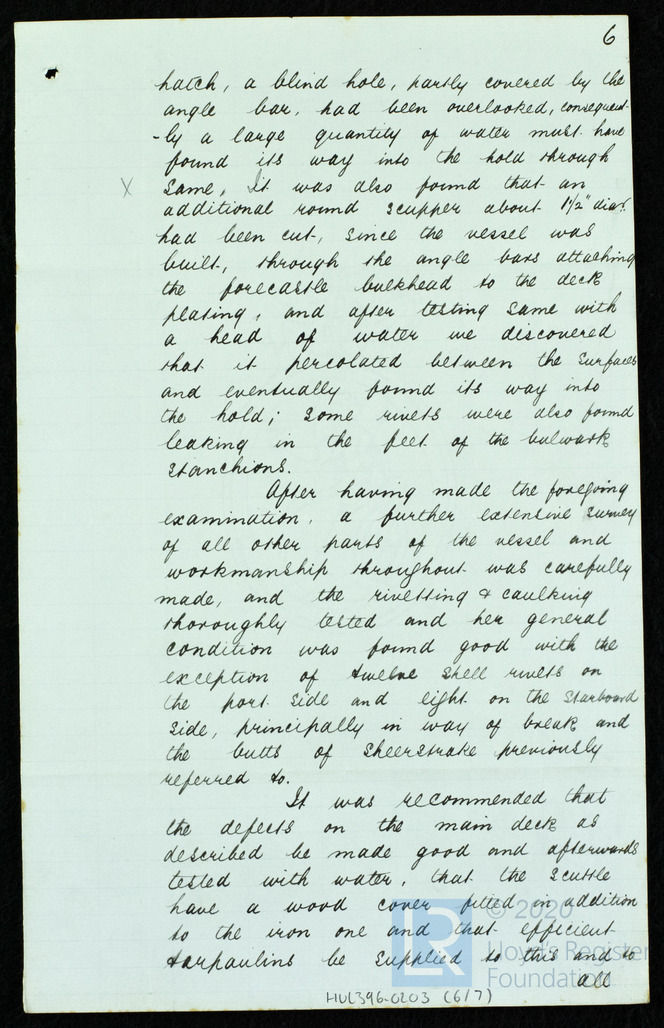 6
hatch, a blind hole, partly covered by the
angle bar, had been overlooked, consequent-
-ly a large quantity of water must have
found its way into the hold through
X same. It was also found that an
additional round scupper about 1 1/2" diar.
had been cut, since the vessel was
built, through the angle bars attaching
the forecastle bulkhead to the deck
plating, and after testing same with
a head of water we discovered
that it percolated between the surfaces
and eventually found its way into
the hold; some rivets were also found
leaking in the feet of the bulwark
stanchions.
After having made the foregoing
examination, a further extensive survey
of all other parts of the vessel and
workmanship throughout was carefully
made, and the rivetting & caulking
thoroughly tested and her general
condition was found good with the
exception of twelve shell rivets on
the port side and eight on the starboard
side, principally in way of break and
the butts of sheerstrake previously
referred to.
It was recommended that
the defects on the main deck as
described be made good and afterwards
tested with water, that the scuttle
have a wood cover fitted in addition
to the iron one and that efficient
tarpaulins be supplied to this and to
all
HUL396-0203 (6/7)
LR © 2020
Lloyd's Register
Foundation